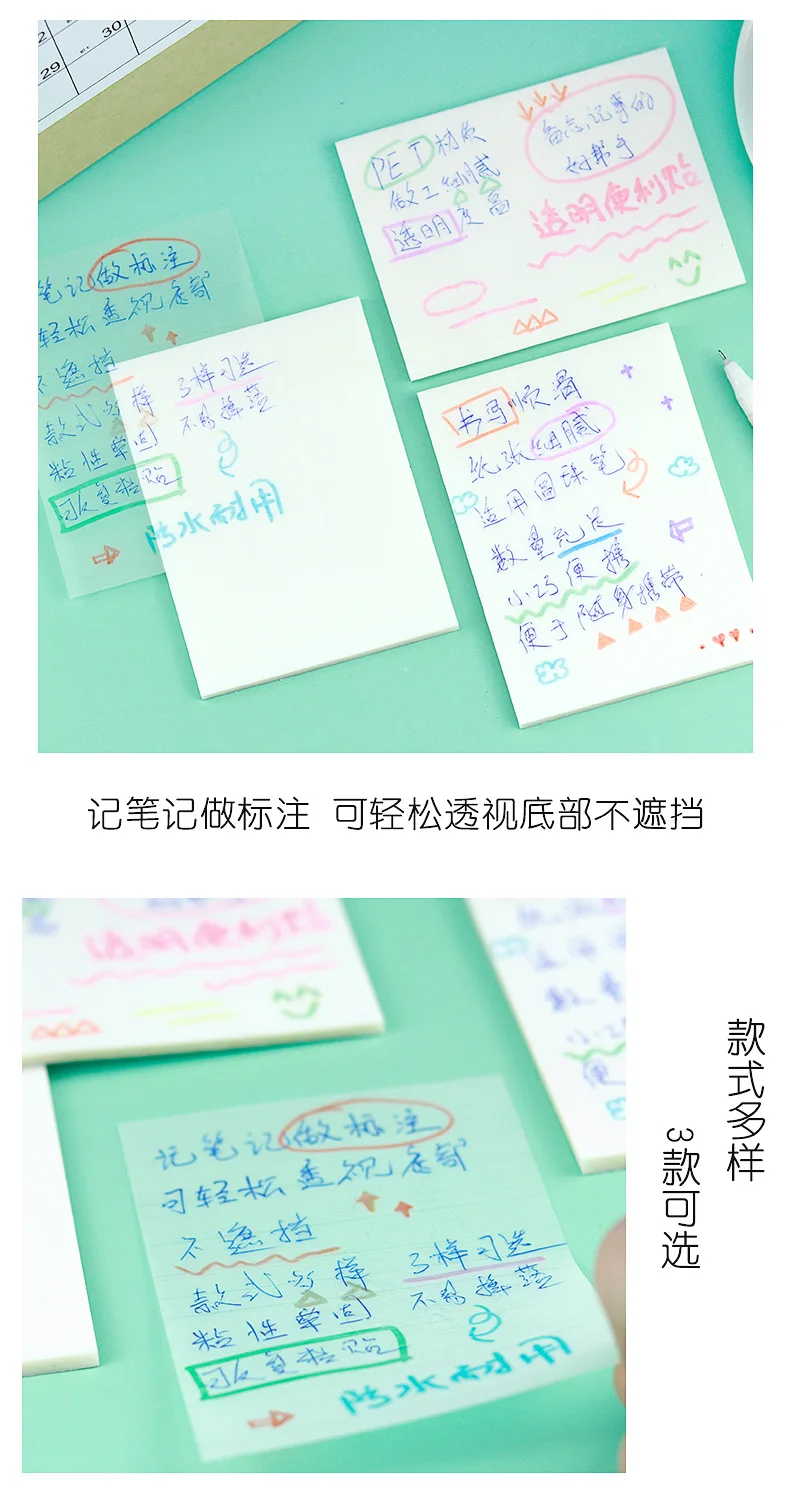 30
29
PET材质
做工细腻
透明度高
备忘记事的
好帮手
透明便利贴
笔记做标注
可轻松透视底部
不遮挡
款式多样
3样可选
粘性牢固
不易掉落
可反复粘贴
防水耐用
书写顺滑
纸张细腻
适用圆珠笔
数量充足
小巧便携
便于随身携带
记笔记做标注 可轻松透视底部不遮挡
透明便利贴
记笔记做标注
可轻松透视底部
不遮挡
款式多样
3样可选
粘性牢固
不易掉落
可反复粘贴
防水耐用
款式多样
3款可选